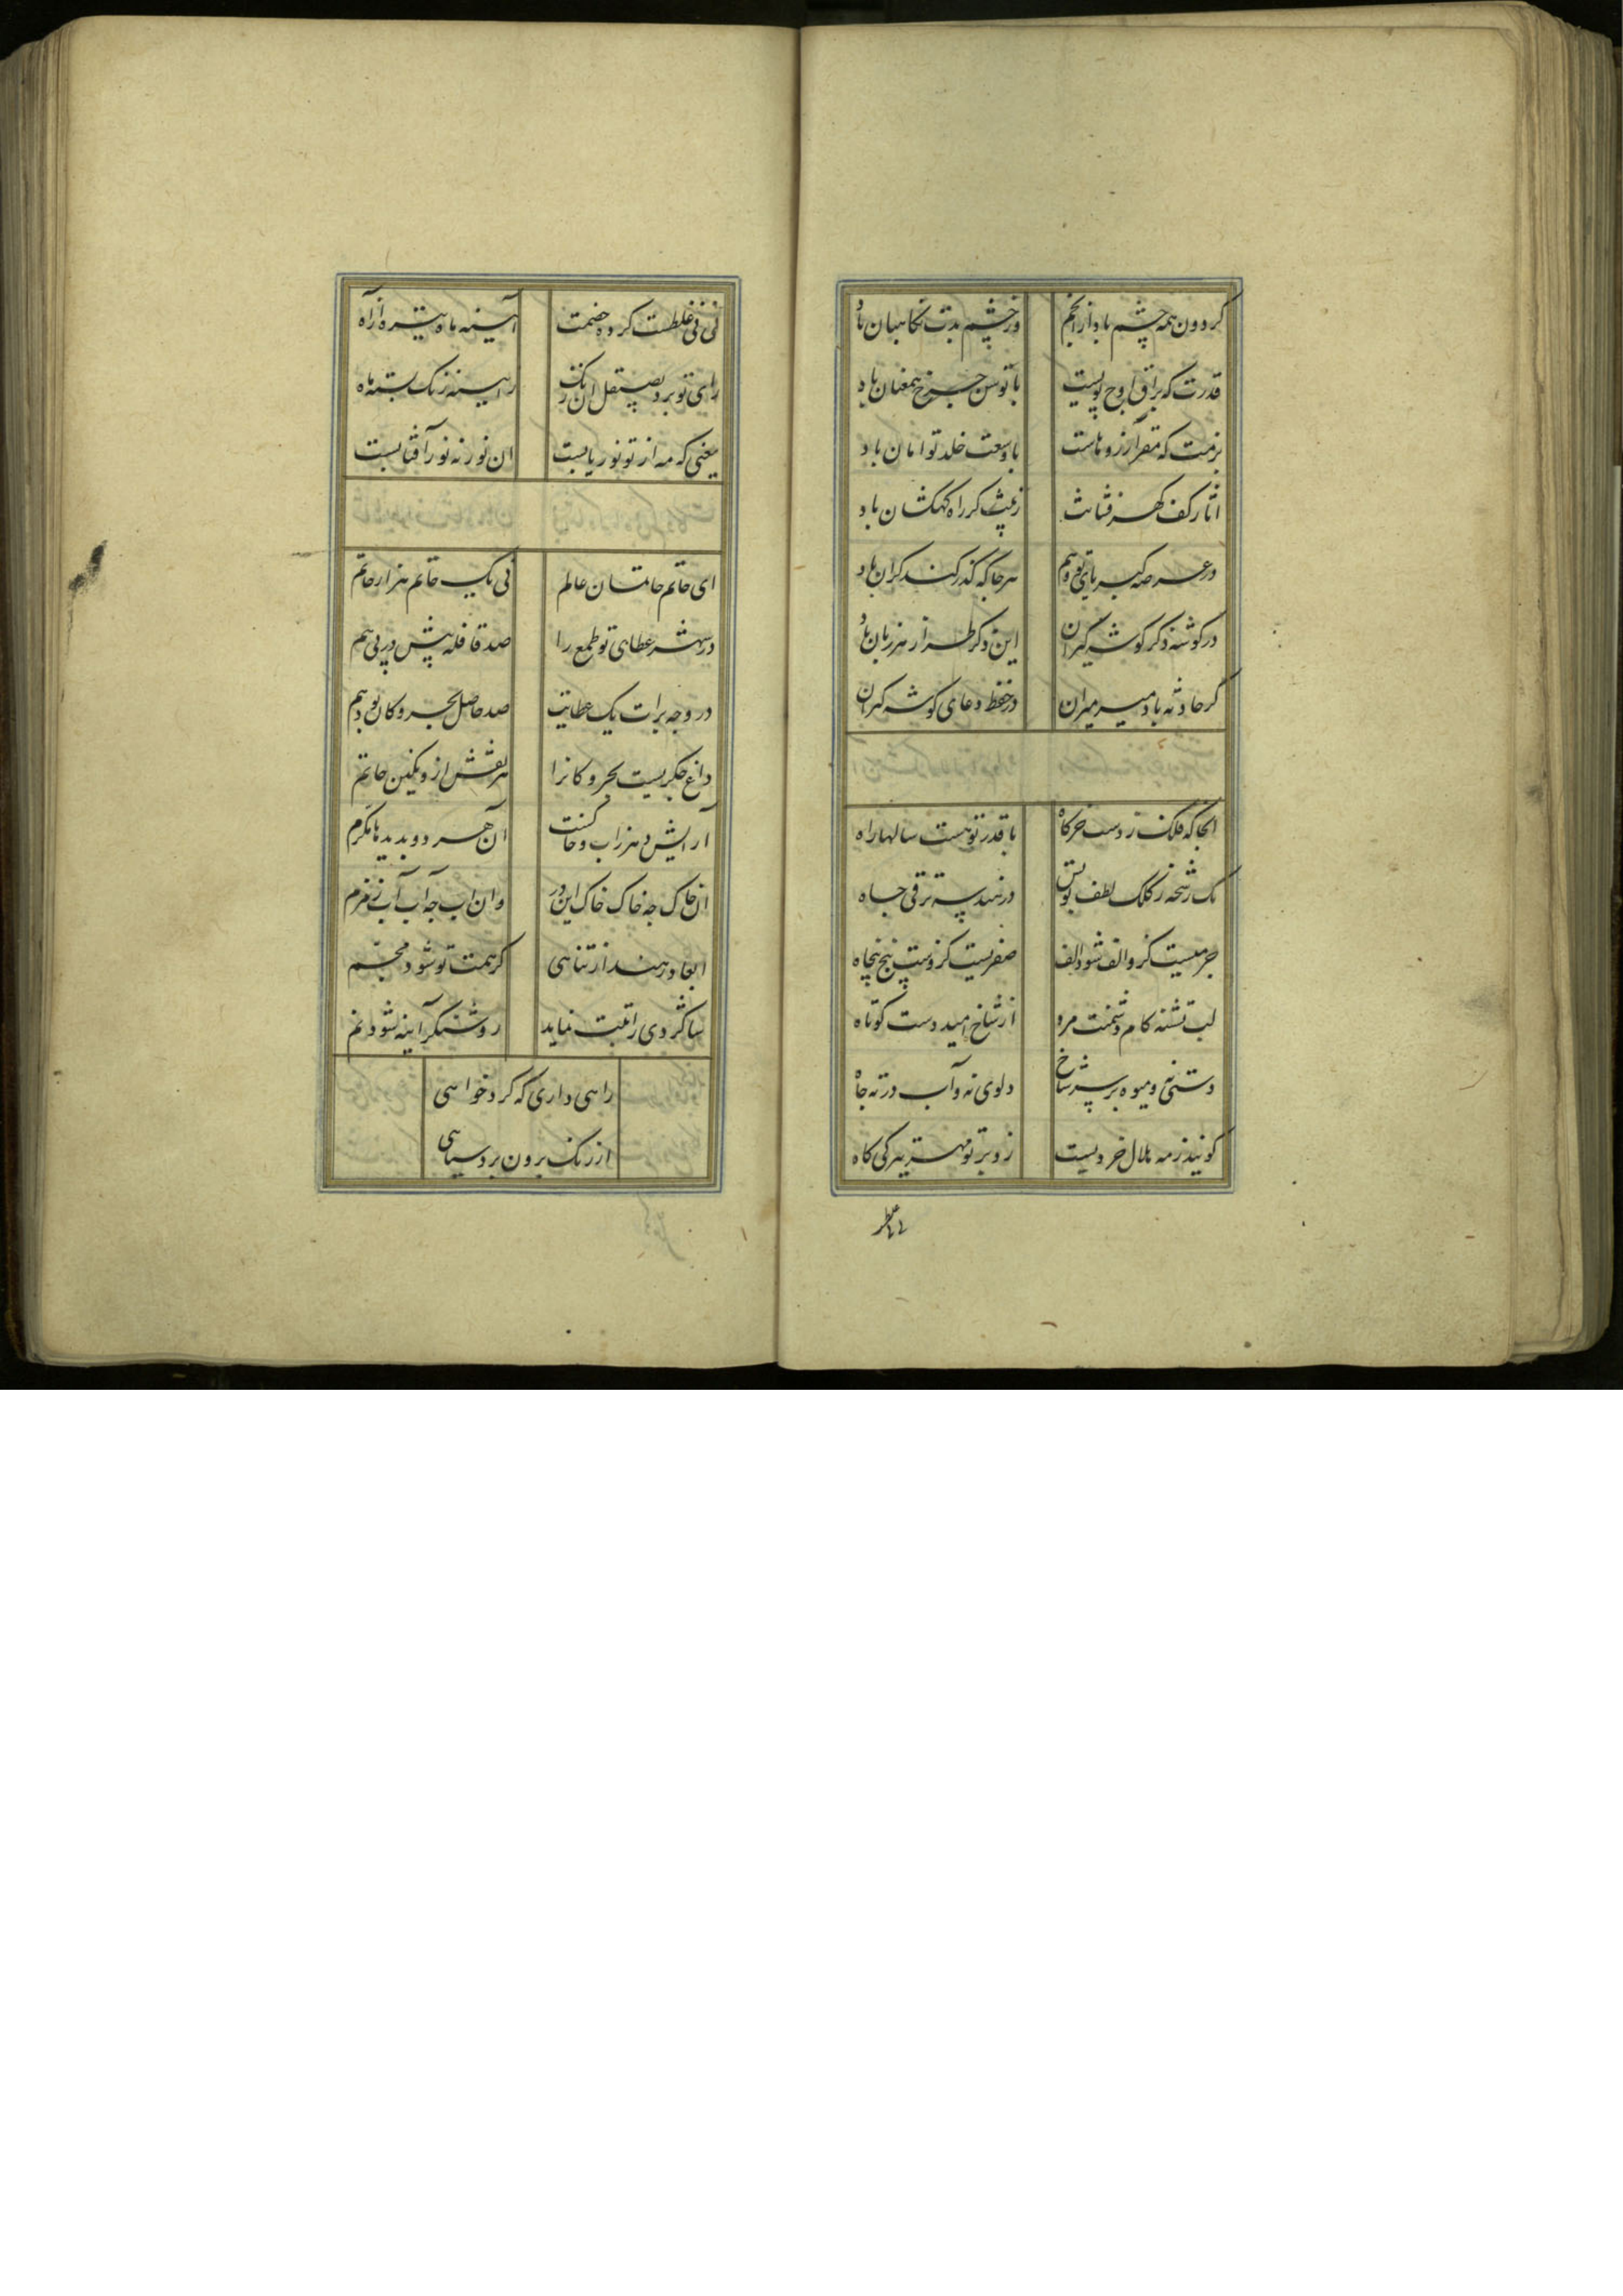 کردون همه چشم باد از انجم وز چشم بدت نکاهبان باد
قدرت که براق اوج پویست با توسن چرخ همعنان باد
بزمت که مقر آرزوهاست با وسعت خلد توامان باد
اثار کف کهر فشانت
در عرصه کبریای تو وهم هر جا که کذر کند کران باد
در کوشه ذکر کوشه کیران این ذکر طراز هر زبان باد
کر حادثه باد میر میران در حفظ دعای کوشه کیران
انجا که فلک زدست خرکاه با قدر تو هست سالها راه
یک رشحه ز کلک لطف تو بس در هندسه ترقی جاه
جرمیست کزو الف شود الف صفریست کزوست پنج پنجاه
لب تشنه کام دشمنت مرد از شاخ امید دست کوتاه
دستی نه و میوه بر سر شاخ دلوی نه و آب در ته چاه
کویند ز مه هلال خرویست
نی نی غلطست کرده خصمت آیینه ماه تیره از آه
رای تو برد بصیقل ان زنک ز آیینه زنک بسته ماه
یعنی که مه از تو نور یابست ان نور نه نور آفتابست
ای خاتم خاتمان عالم نی یک خاتم هزار خاتم
در شهر عطای تو طمع را صد قافله پیش در پی هم
در وجه برات یک عطایت صد حاصل بحر و کان بود کم
داغ جکریست بحر و کانرا هر نقش از و نکین خاتم
آرایش دهر ز اب و خاکست آن هر دو پدید با مکرم
ان خاک چه خاک خاک این در وان اب چه آب آب زمزم
ابعاد رهند از تناهی کر همت تو شود مجسم
روشنکر آینه شود نم
راهی داری که کر خواهی
از زنک برون برد سیاهی